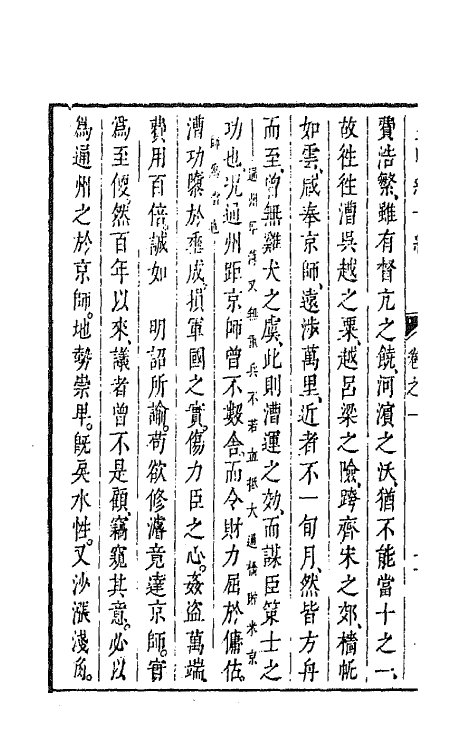 卷之一
費浩繁、雖有督亢之饒、河濱之沃、猶不能當十之一、
故徃徃漕吳越之粟、越呂梁之險、跨齊宋之郊、檣帆
如雲、咸奉京師、遠涉萬里、近者不一旬月、然皆方舟
而至、曾無雞犬之虞、此則漕運之効、而謀臣策士之
功也、况通州距京師曾不數舍、而令財力屈於傭估、
漕功隳於垂成、損軍國之實、傷力臣之心、姦盜萬端、
費用百倍、誠如　明詔所諭。苟欲修濬竟達京師。實
爲至便、然百年以來、議者曾不是顧、竊窺其意。必以
爲通州之於京師。地勢崇卑。旣吳水性。又沙漲淺角。
通州卑薄又無重兵不若直抵大通橋附米京
師爲省也